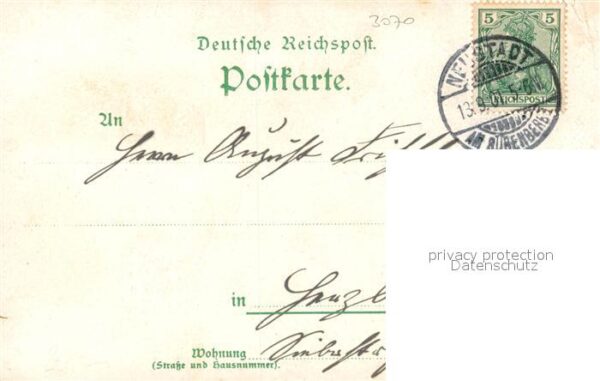 3070
Deutsche Reichspost.
Postkarte.
5
REICHSPOST
NEUSTADT
AM RÜBENBERGE
An
Herrn August
privacy protection
Datenschutz
in
Wohnung
(Straße und Hausnummer).